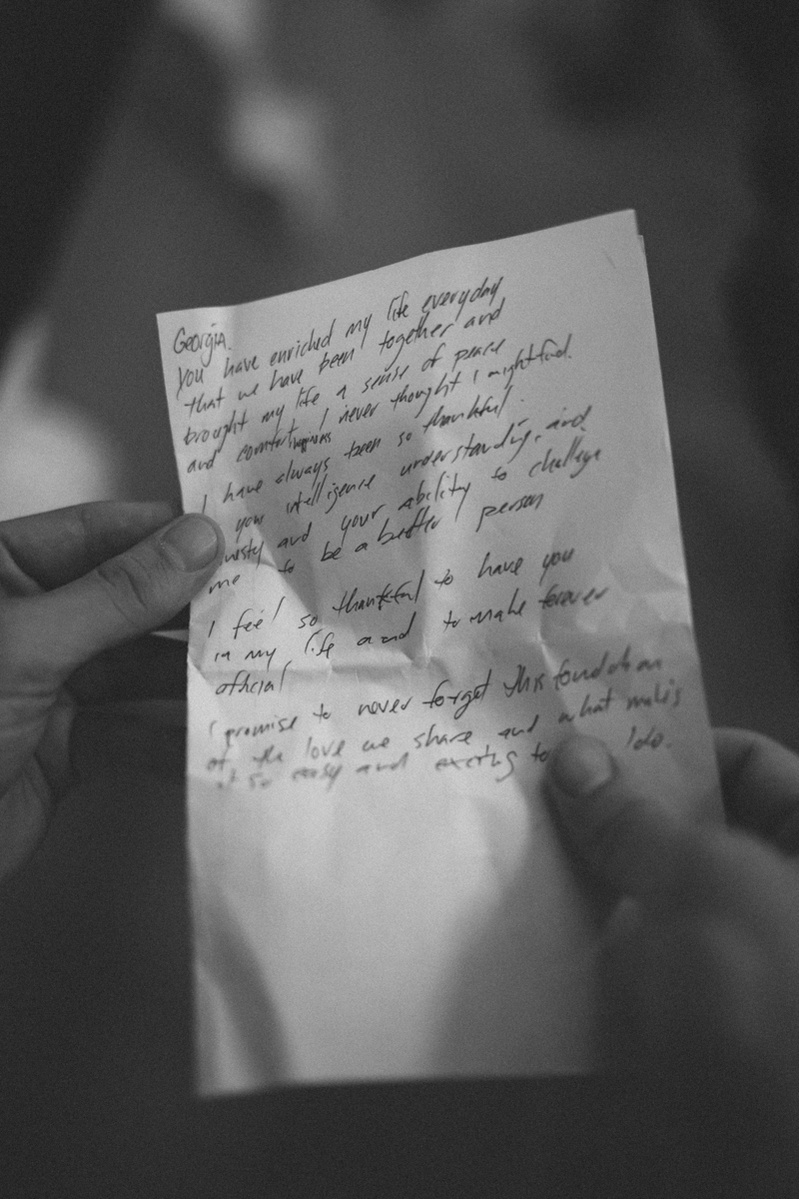 Georgia.
You have enriched my life everyday
that we have been together and
brought my life a sense of peace
and comfort I never thought I might find.
happiness
I have always been so thankful.
your intelligence understanding, and
and your ability to challenge
me to be a better person
I feel so thankful to have you
in my life and to make forever
official
I promise to never forget this foundation
of the love we share and what makes
it so easy and exciting to I do.